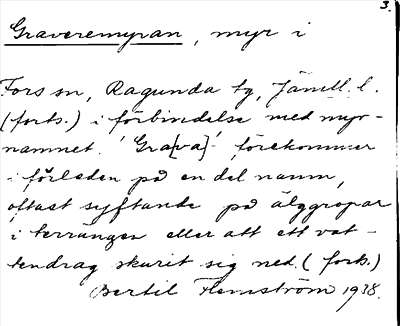 3.
Graveremyran, myr i
Fors sn, Ragunda tg, Jämtl. l.
(forts.) i förbindelse med myr-
namnet. 'Gra[va]' förekommer
i förleden på en del namn,
oftast syftande på älggropar
i terrängen eller att ett vat-
tendrag skurit sig ned. (forts.)
Bertil Flemström 1938.